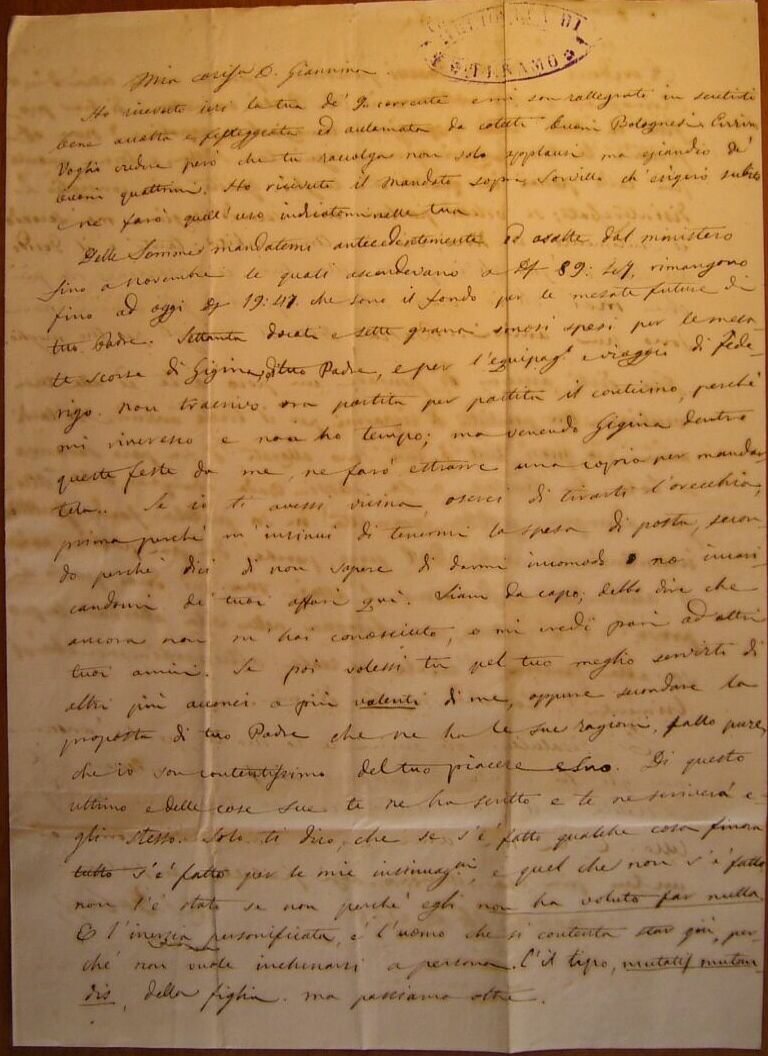 DI
TERAMO
Mia carissa D. Giannina
Ho ricevuto ieri la tua de' 9. corrente e mi son rallegrato in sentirti
bene accetta e festeggiata ed acclamata da cotesti buoni Bolognesi.
Voglio credere però che tu raccolga non solo applausi ma eziandio de'
buoni quattrini. Ho ricevuto il mandato sopra Sorvillo ch'esigerò subito
e ne farò quell'uso indicatomi nella tua
Delle Somme mandatemi antecedentemente ed esatte dal ministero
fino a novembre le quali ascendevano a Df 89:47, rimangono
fino ad oggi df 19:47 che sono il fondo per le mesate future di
tuo Padre. Settanta docati e sette grana sonosi spesi per le mesa-
te scorse di Gigina, di tuo Padre, e per l'equipag.o e viaggio di Fede-
rigo. non trascrivo ora partita per partita il conticino, perchè
mi rincresce e non ho tempo; ma venendo Gigina dentro
queste feste da me, ne farò estrarre una copia per mandar-
tela. Se io ti avessi vicina, oserei di tirarti l'orecchio,
prima perchè m'insinui di tenermi la spesa di posta, secon-
do perchè dici di non sapere di darmi incomodo o no incari-
candomi de' tuoi affari quì. Siam da capo; debbo dire che
ancora non m'hai conosciuto, o mi credi pari ad altri
tuoi amici. Se poi volessi tu pel tuo meglio servirti di
altri più acconci o più valenti di me, oppure secondare la
proposta di tuo Padre che ne ha le sue ragioni, fallo pure,
che io son contentissimo del tuo piacere e suo. Di questo
ultimo e delle cose sue te ne ha scritto e te ne scriverà e-
gli stesso. Solo ti dico, che se s'è fatto qualche cosa finora
tutto s'è fatto per le mie insinuag.ni, e quel che non s'è fatto
non l'è stato se non perchè egli non ha voluto far nulla.
È l'inerzia personificata, è l'uomo che si contenta star giù, per-
chè non vuole inchinarsi a persona. È il tipo, mutatis mutan-
dis, della figlia. ma passiamo oltre.